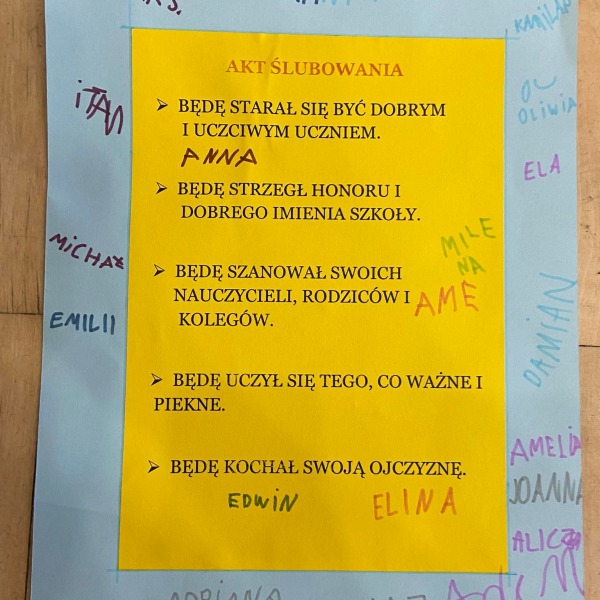 KAMILA
AKT ŚLUBOWANIA
➢ BĘDĘ STARAŁ SIĘ BYĆ DOBRYM
I UCZCIWYM UCZNIEM.
ANNA
➢ BĘDĘ STRZEGŁ HONORU I
DOBREGO IMIENIA SZKOŁY.
➢ BĘDĘ SZANOWAŁ SWOICH
NAUCZYCIELI, RODZICÓW I
KOLEGÓW.
➢ BĘDĘ UCZYŁ SIĘ TEGO, CO WAŻNE I
PIEKNE.
➢ BĘDĘ KOCHAŁ SWOJĄ OJCZYZNĘ.
EDWIN
ELINA
MILE
NA
AME
ITAN
MICHAŁ
EMILII
OL
OLIWIA
ELA
DAMIAN
AMELIA
JOANNA
ALICJA
ADRIANA